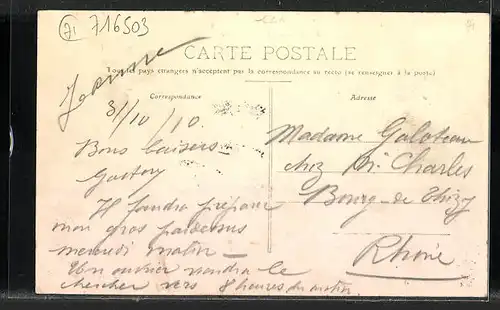 71 716503
CARTE POSTALE
Tous les pays étrangers n'acceptent pas la correspondance au recto (se renseigner à la poste)
Correspondance
Adresse
Jeanne
31/10/10.
Bons baisers
Gaston
Il faudra préparer
mon gros pardessus
mercredi matin
Un ouvrier viendra le
chercher vers 8 heures du matin
Madame Galoteau
chez Mr Charles
Bourg-de-Thizy
Rhône